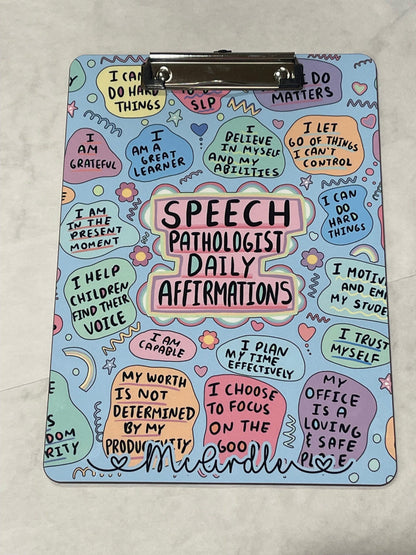 I CAN
DO HARD
THINGS
SLP
I DO
MATTERS
I
AM
GRATEFUL
I
AM A
GREAT
LEARNER
I
BELIEVE
IN MYSELF
AND MY
ABILITIES
I LET
GO OF THINGS
I CAN'T
CONTROL
I AM
IN THE
PRESENT
MOMENT
SPEECH
PATHOLOGIST
DAILY
AFFIRMATIONS
I CAN
DO
HARD
THINGS
I HELP
CHILDREN
FIND THEIR
VOICE
I MOTIV
AND EM
MY STUDE
I AM
CAPABLE
I PLAN
MY TIME
EFFECTIVELY
I TRUST
MYSELF
DOM
RITY
MY WORTH
IS NOT
DETERMINED
BY MY
PRODUCTIVITY
I CHOOSE
TO FOCUS
ON THE
GOO
MY
OFFICE
IS A
LOVING
& SAFE
PLACE
McArdle